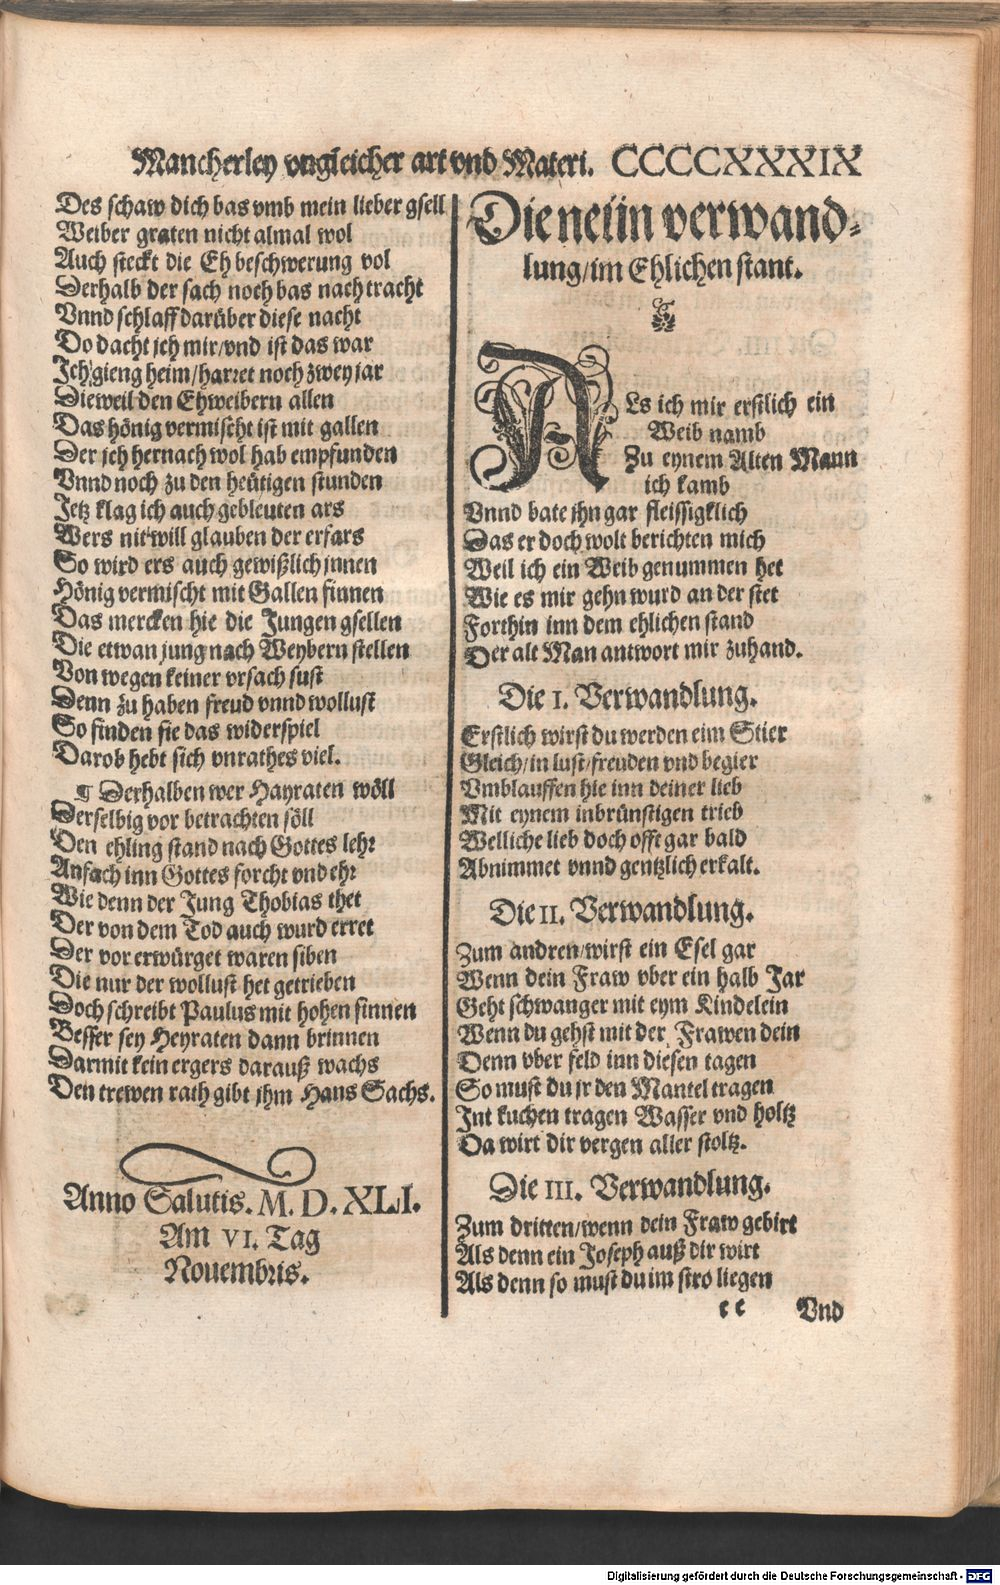 Mancherley vngleicher art vnd Materi. CCCCXXXIX
Des schaw dich bas vmb mein lieber gsell
Weiber graten nicht almal wol
Auch steckt die Eh beschwerung vol
Derhalb der sach noch bas nach tracht
Vnnd schlaff darüber diese nacht
Do dacht ich mir/vnd ist das war
Ich gieng heim/harret noch zwey jar
Dieweil den Ehweibern allen
Das hönig vermischt ist mit gallen
Der ich hernach wol hab empfunden
Vnnd noch zu den heütigen stunden
Jetz klag ich auch gebleuten ars
Wers nit will glauben der erfars
So wird ers auch gewißlich jnnen
Hönig vermischt mit Gallen finnen
Das mercken hie die Jungen gsellen
Die etwan jung nach Weybern stellen
Von wegen keiner vrsach sust
Denn zu haben freud vnnd wollust
So finden sie das widerspiel
Darob hebt sich vnrathes viel.
¶ Derhalben wer Hayraten wöll
Derselbig vor betrachten söll
Den ehling stand nach Gottes lehr
Anfach inn Gottes forcht vnd ehr
Wie denn der Jung Thobias thet
Der von dem Tod auch wurd erret
Der vor erwürget waren siben
Die nur der wollust het getrieben
Doch schreibt Paulus mit hohen sinnen
Besser sey Heyraten dann brinnen
Darmit kein ergers darauß wachs
Den trewen rath gibt jhm Hans Sachs.
Anno Salutis. M. D. XLI.
Am VI. Tag
Nouembris.
Die neün verwand⸗
lung/im Ehlichen stant.
ALs ich mir erstlich ein
Weib namb
Zu eynem Alten Mann
ich kamb
Vnnd bate jhn gar fleissigklich
Das er doch wolt berichten mich
Weil ich ein Weib genummen het
Wie es mir gehn wurd an der stet
Forthin inn dem ehlichen stand
Der alt Man antwort mir zuhand.
Die I. Verwandlung.
Erstlich wirst du werden eim Stier
Gleich/in lust/freuden vnd begier
Vmblauffen hie inn deiner lieb
Mit eynem inbrünstigen trieb
Welliche lieb doch offt gar bald
Abnimmet vnnd gentzlich erkalt.
Die II. Verwandlung.
Zum andren/wirst ein Esel gar
Wenn dein Fraw vber ein halb Jar
Geht schwanger mit eym Kindelein
Wenn du gehst mit der Frawen dein
Denn vber feld inn diesen tagen
So must du jr den Mantel tragen
Int kuchen tragen Wasser vnd holtz
Da wirt dir vergen aller stoltz.
Die III. Verwandlung.
Zum dritten/wenn dein Fraw gebirt
Als denn ein Joseph auß dir wirt
Als denn so must du im stro liegen
cc Vnd
Digitalisierung gefördert durch die Deutsche Forschungsgemeinschaft - DFG